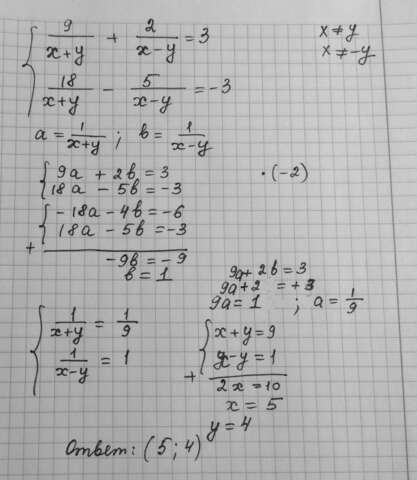 { 9/(x+y) + 2/(x-y) = 3
x ≠ y
x ≠ -y
{ 18/(x+y) - 5/(x-y) = -3
a = 1/(x+y) ; b = 1/(x-y)
{ 9a + 2b = 3 · (-2)
{ 18a - 5b = -3
{ -18a - 4b = -6
+ { 18a - 5b = -3
-9b = -9
b = 1
9a + 2b = 3
9a + 2 = +3
9a = 1 ; a = 1/9
{ 1/(x+y) = 1/9
{ 1/(x-y) = 1
{ x + y = 9
+ { x - y = 1
2x = 10
x = 5
y = 4
Ответ: (5; 4)